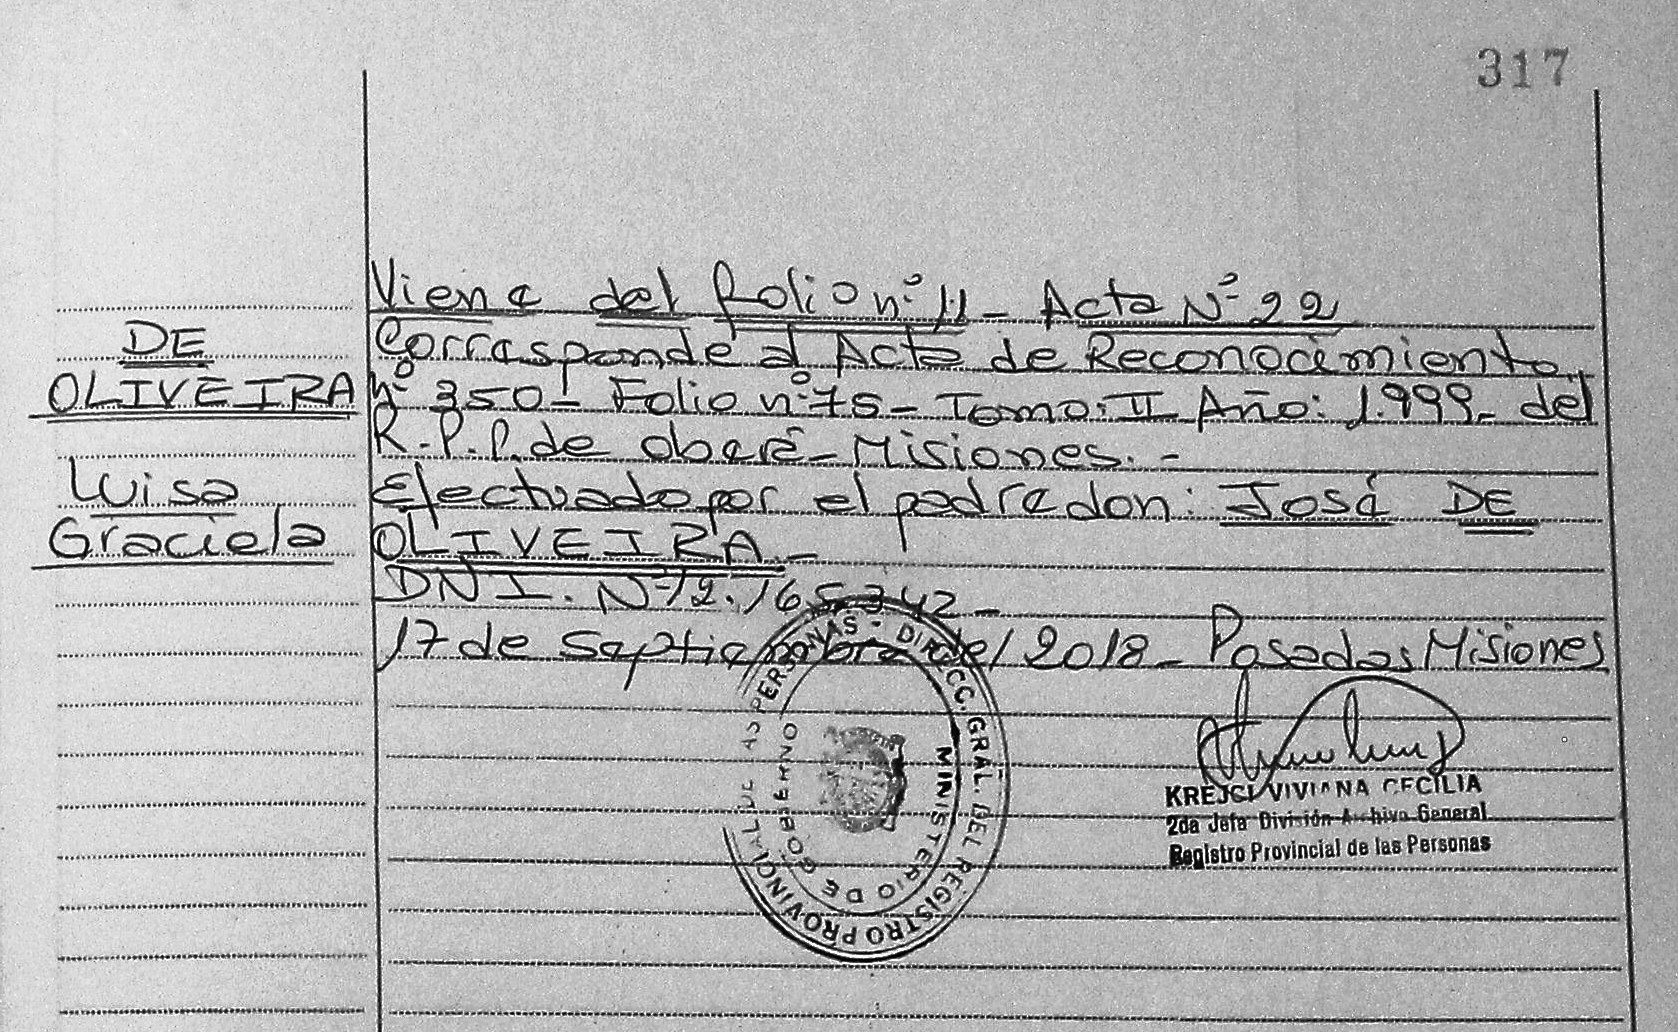 317
DE
OLIVEIRA
Luisa
Graciela
Viene del folio n° 11 - Acta N° 22
Corresponde al Acta de Reconocimiento
n° 350 - Folio n° 75 - Tomo: II Año: 1.999.- del
R.P.P. de Oberá - Misiones. -
Efectuado por el padre don: José DE
OLIVEIRA. -
DNI. N° 12.165.342 -
17 de Septiembre del 2018 - Posadas Misiones
REGISTRO PROVINCIAL DE LAS PERSONAS - DIRECC. GRAL. DEL
MINISTERIO DE GOBIERNO
KREJCI VIVIANA CECILIA
2da Jefa División Archivo General
Registro Provincial de las Personas